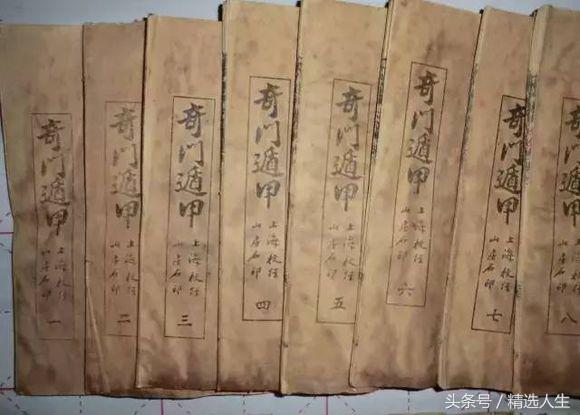 奇门遁甲
上海校经
山房石印
一
奇门遁甲
上海校经
山房石印
二
奇门遁甲
上海校经
山房石印
三
奇门遁甲
上海校经
山房石印
四
奇门遁甲
上海校经
山房石印
五
奇门遁甲
上海校经
山房石印
六
奇门遁甲
上海校经
山房石印
七
奇门遁甲
上海校经
山房石印
八
头条号／精选人生